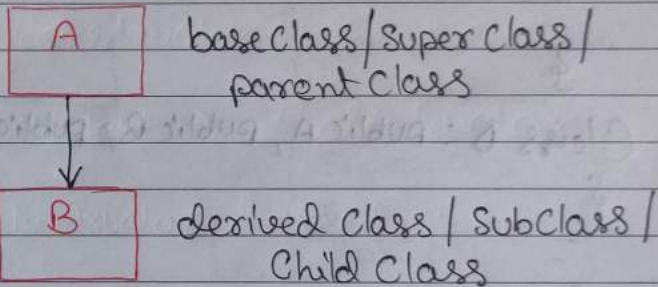 A base class / super class /
parent class
B derived class / subclass /
Child class